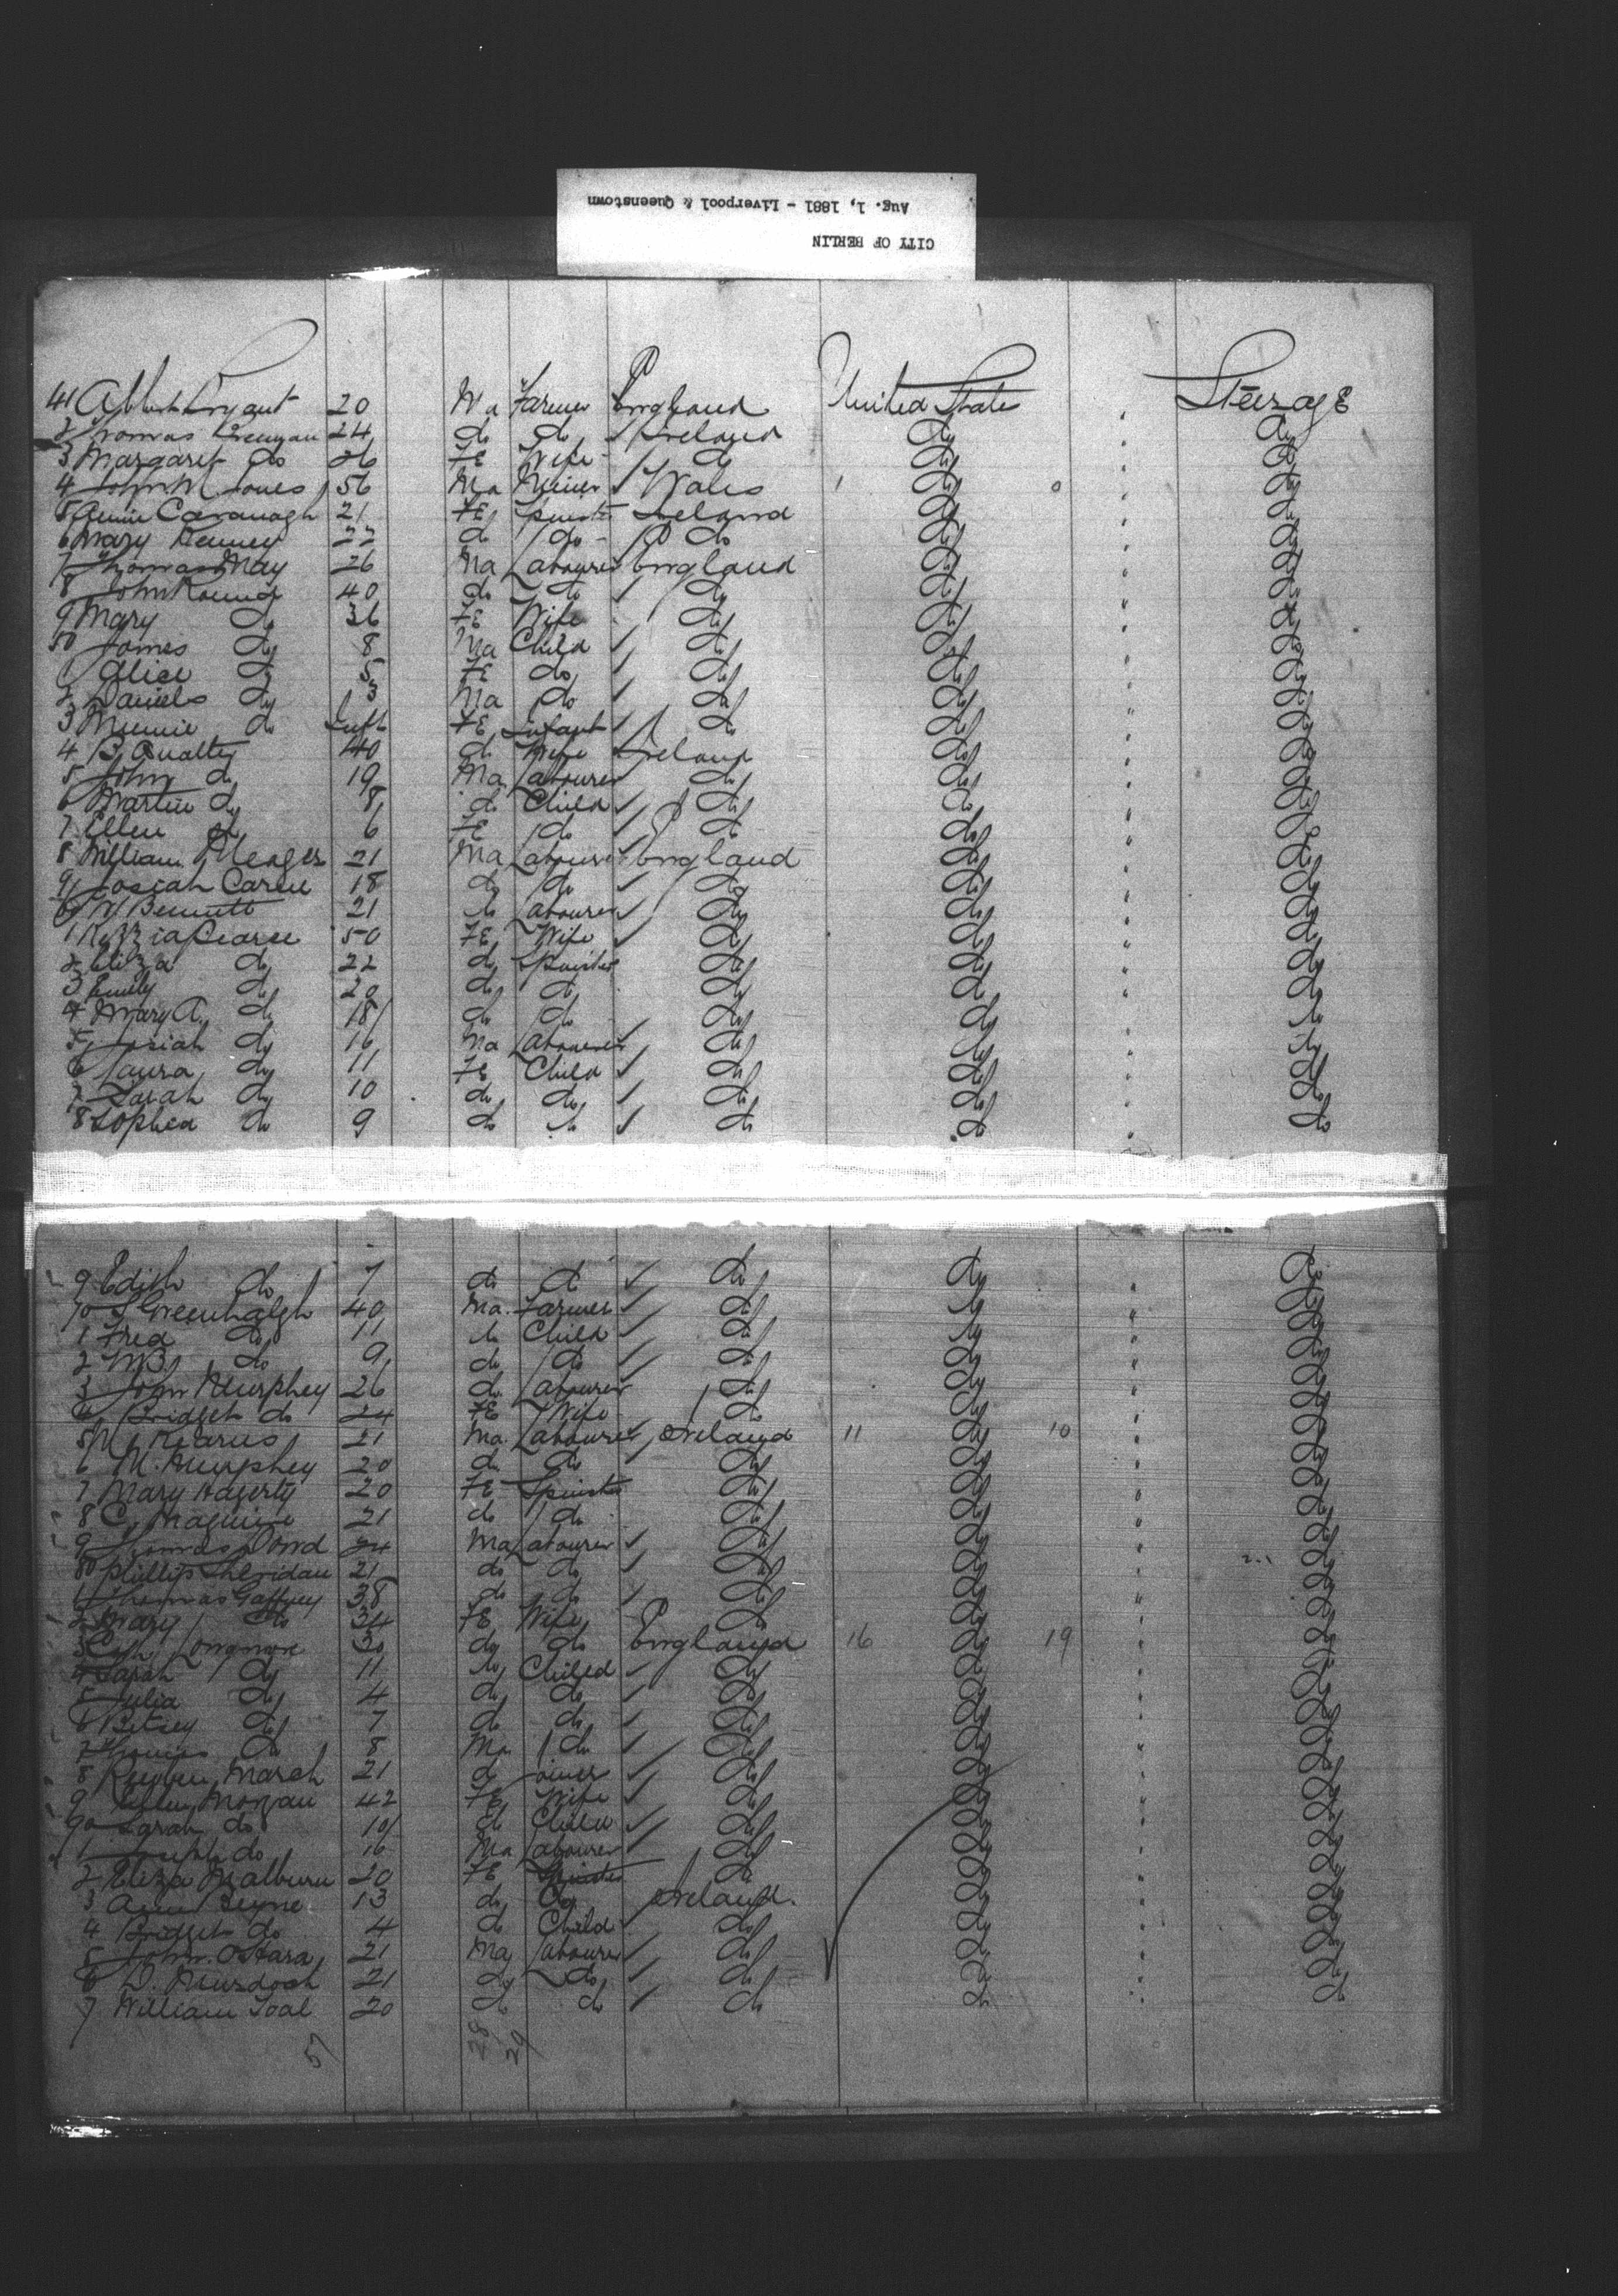 CITY OF BERLIN
Aug. 1, 1881 - Liverpool & Queenstown
41 Albert Bryant 20 Ma Farmer England United States " Steerage
2 Thomas 24 do do Ireland do " do
3 Margaret do 26 FE Wife do do " do
4 John M. Jones 56 Ma Miner Wales 1 do 0 " do
5 Annie Cavanagh 21 FE Spinster Ireland do " do
6 Mary Kenney 22 do do do do " do
7 Thomas May 26 Ma Labourer England do " do
8 John Round 40 do do do do " do
9 Mary do 36 FE Wife do do " do
50 James do 8 Ma Child do do " do
1 Alice do 5 FE do do do " do
2 Daniels do 3 Ma do do do " do
3 Minnie do Inft FE Infant do do " do
4 B Qualty 40 do Wife Ireland do " do
5 John do 19 Ma Labourer do do " do
6 Martin do 8 do Child do do " do
7 Ellen do 6 FE do do do " do
8 William Meager 21 Ma Labourer England do " do
9 Josiah Carne 18 do do do do " do
60 W Bennett 21 do Labourer do do " do
1 Kezzia Pearse 50 FE Wife do do " do
2 Eliza do 22 do Spinster do do " do
3 Emily do 20 do do do do " do
4 Mary A. do 18 do do do do " do
5 Josiah do 16 Ma Labourer do do " do
6 Laura do 11 FE Child do do " do
7 Sarah do 10 do do do do " do
8 Sophia do 9 do do do do " do
9 Edith do 7 do do do do " do
70 Greenhalgh 40 Ma. Farmer do do " do
1 Fred do 11 do Child do do " do
2 W.B. do 9 do do do do " do
3 John Murphey 26 do. Labourer do do " do
4 Bridget do 24 FE Wife do do " do
5 Kearns 21 Ma. Labourer Ireland 11 do 10 " do
6 M. Murphey 20 do do do do " do
7 Mary Hagerty 20 FE Spinster do do " do
8 C. Maguire 21 do do do do " do
9 Thomas Dowd 24 Ma Labourer do do " do
80 Phillip Sheridan 21 do do do do " do
1 Thomas Gaffney 38 do do do do " do
2 Mary do 34 FE Wife do do " do
3 Longmore 30 do do England 16 do 19 " do
4 Sarah do 11 do Child do do " do
5 Julia do 4 do do do do " do
6 Betsey do 7 do do do do " do
7 Thomas do 8 Ma do do do " do
8 Reuben March 21 do Joiner do do " do
9 Ellen Morgan 42 FE Wife do do " do
90 Sarah do 10 do Child do do " do
1 Joseph do 16 Ma Labourer do do " do
2 Eliza Malburn 20 FE Spinster do do " do
3 Beyne 13 do do Ireland. do " do
4 Bridget do 4 do Child do do " do
5 John O'Hara 21 Ma Labourer do do " do
6 D. Murdoch 21 do do do do " do
7 William Toal 20 do do do do " do
57 28 29